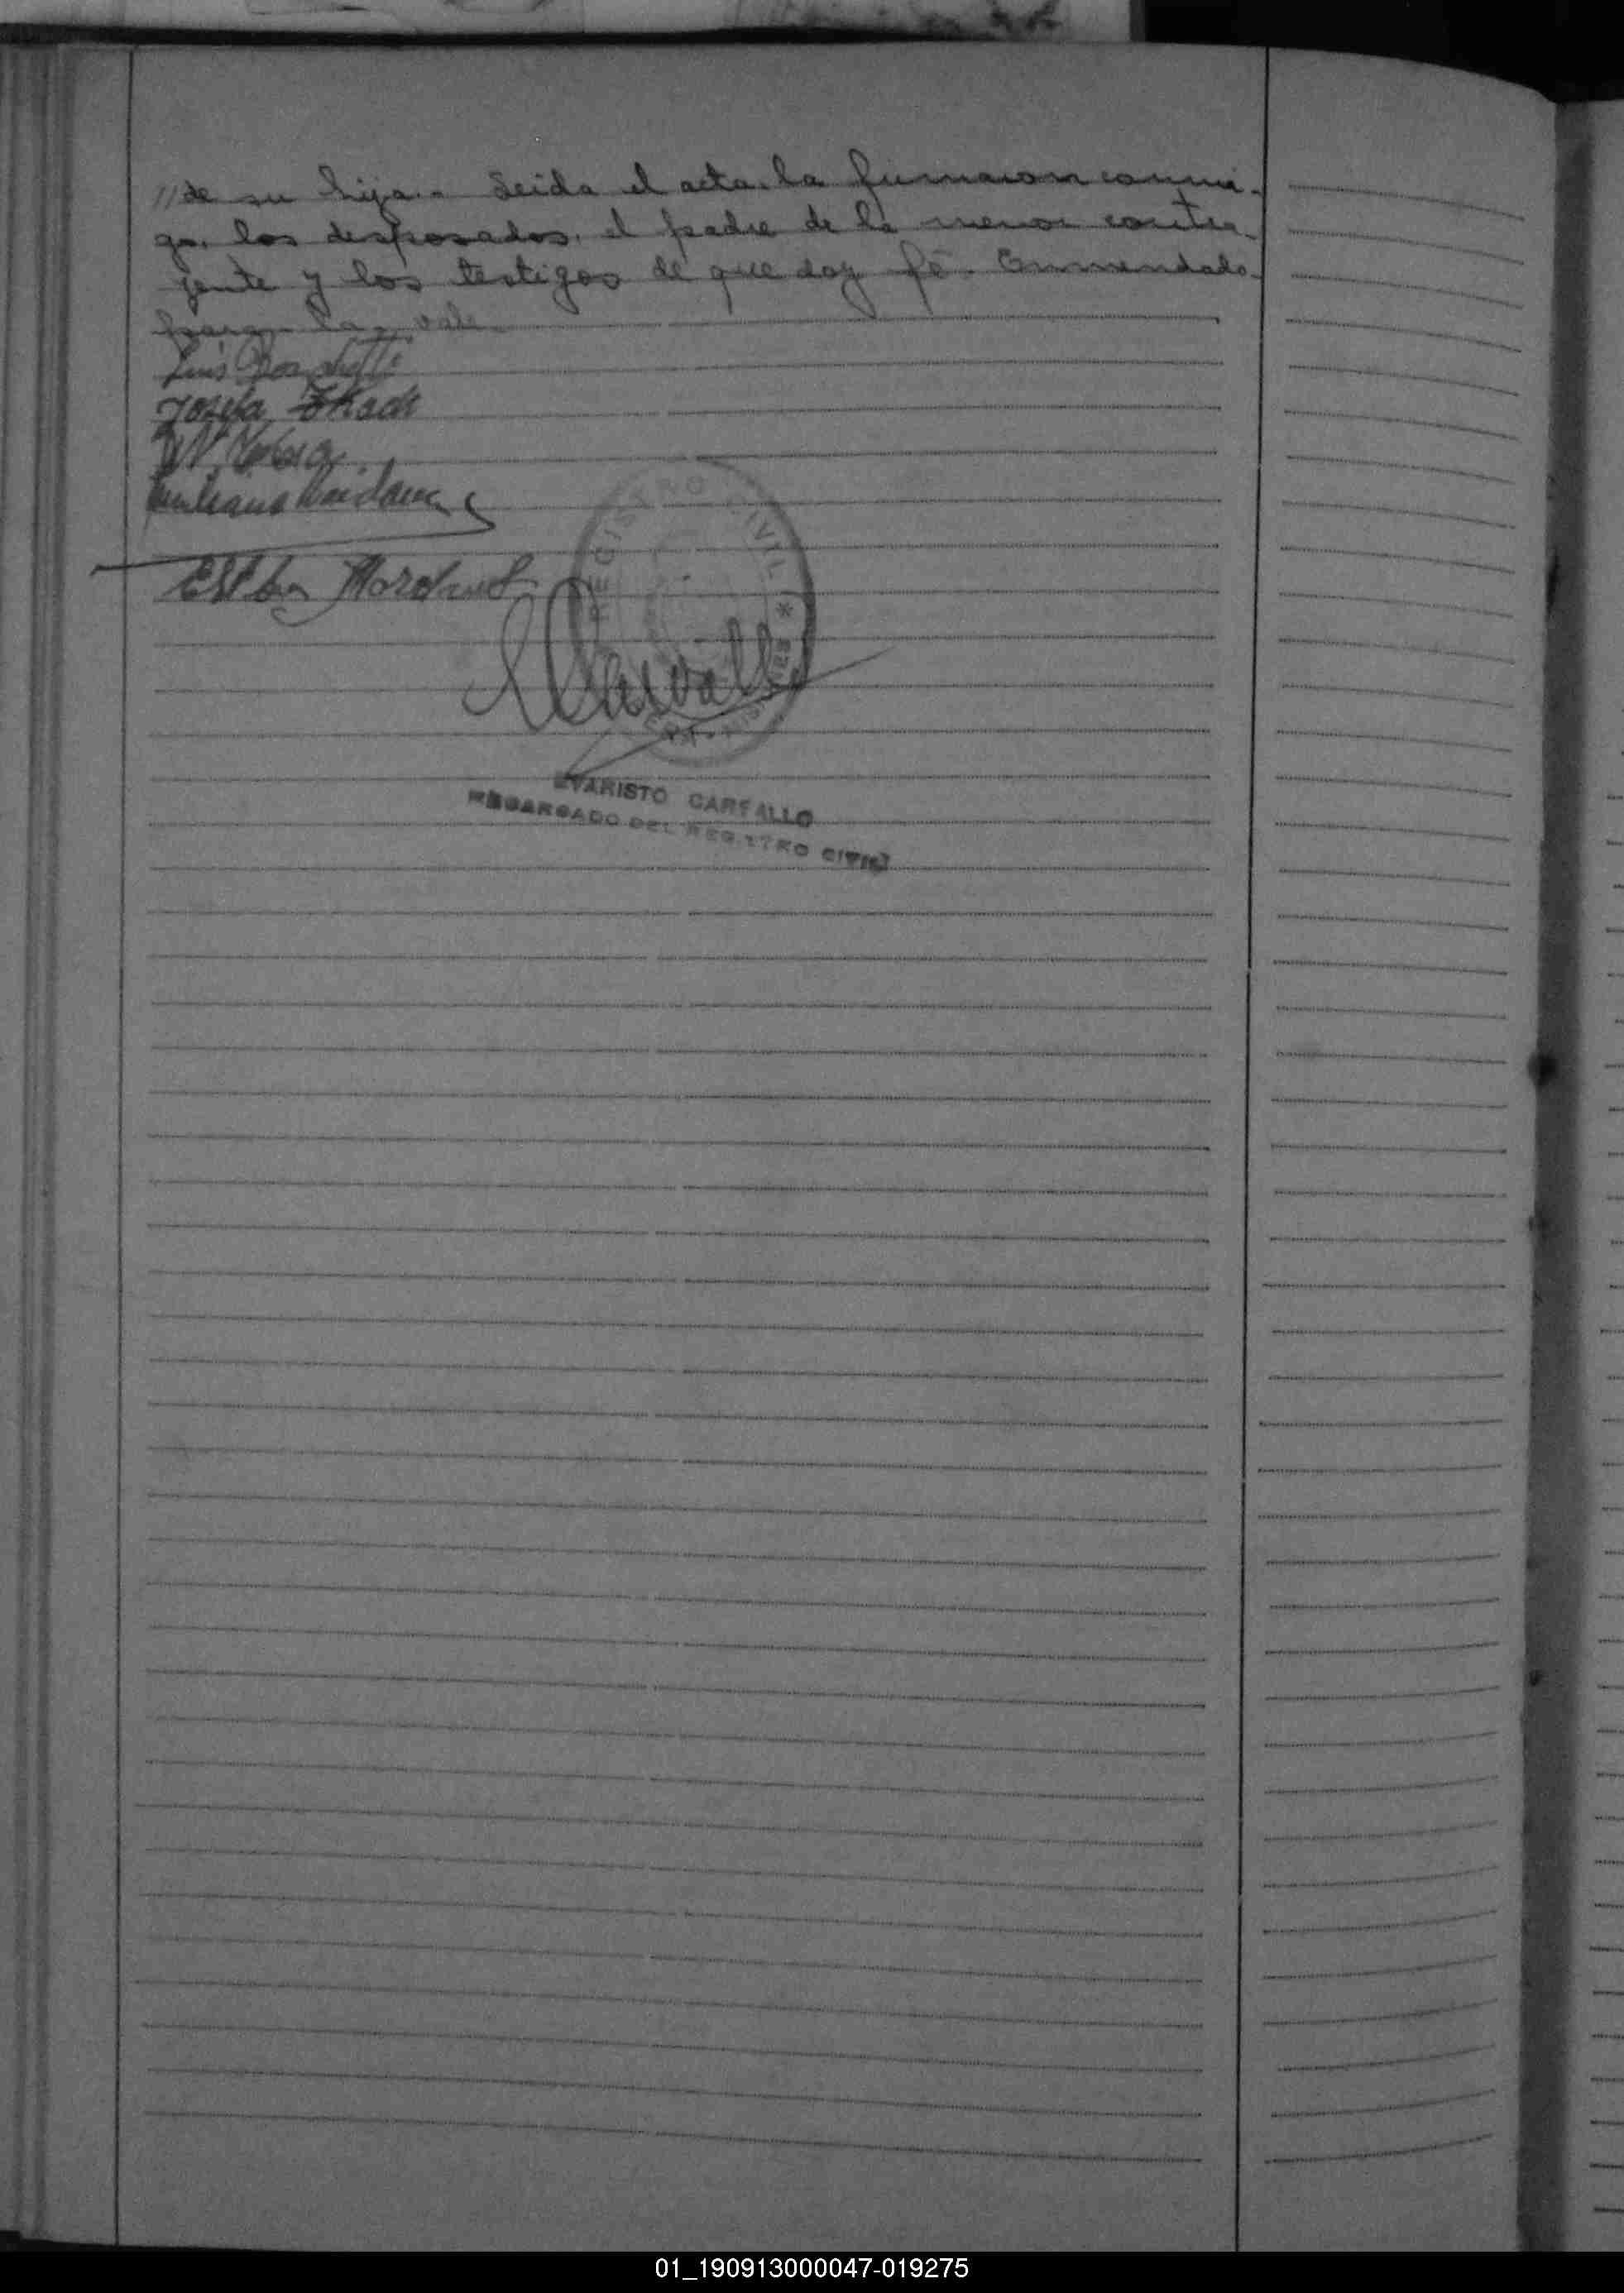 // de su hija.- Leida el acta, la firmaron conmi-
go, los desposados, el padre de la menor contra-
yente y los testigos de que doy fé. Enmendado-
para- la- vale.
Luis
Josefa
Esther
REGISTRO CIVIL *
Carvallo
EVARISTO CARVALLO
ENCARGADO DEL REGISTRO CIVIL
01_190913000047-019275